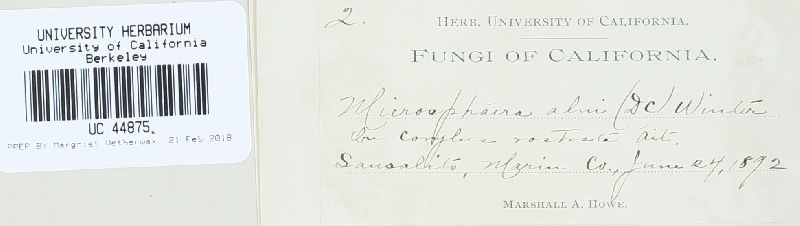 UNIVERSITY HERBARIUM
University of California
Berkeley
UC 44875.
PREP BY Margriet Wetherwax, 21 Feb 2018
2.
HERB. UNIVERSITY OF CALIFORNIA.
FUNGI OF CALIFORNIA.
Microsphaera alni (DC) Winter
On Corylus rostrata Ait.
Sausalito, Marin Co., June 24, 1892
MARSHALL A. HOWE.